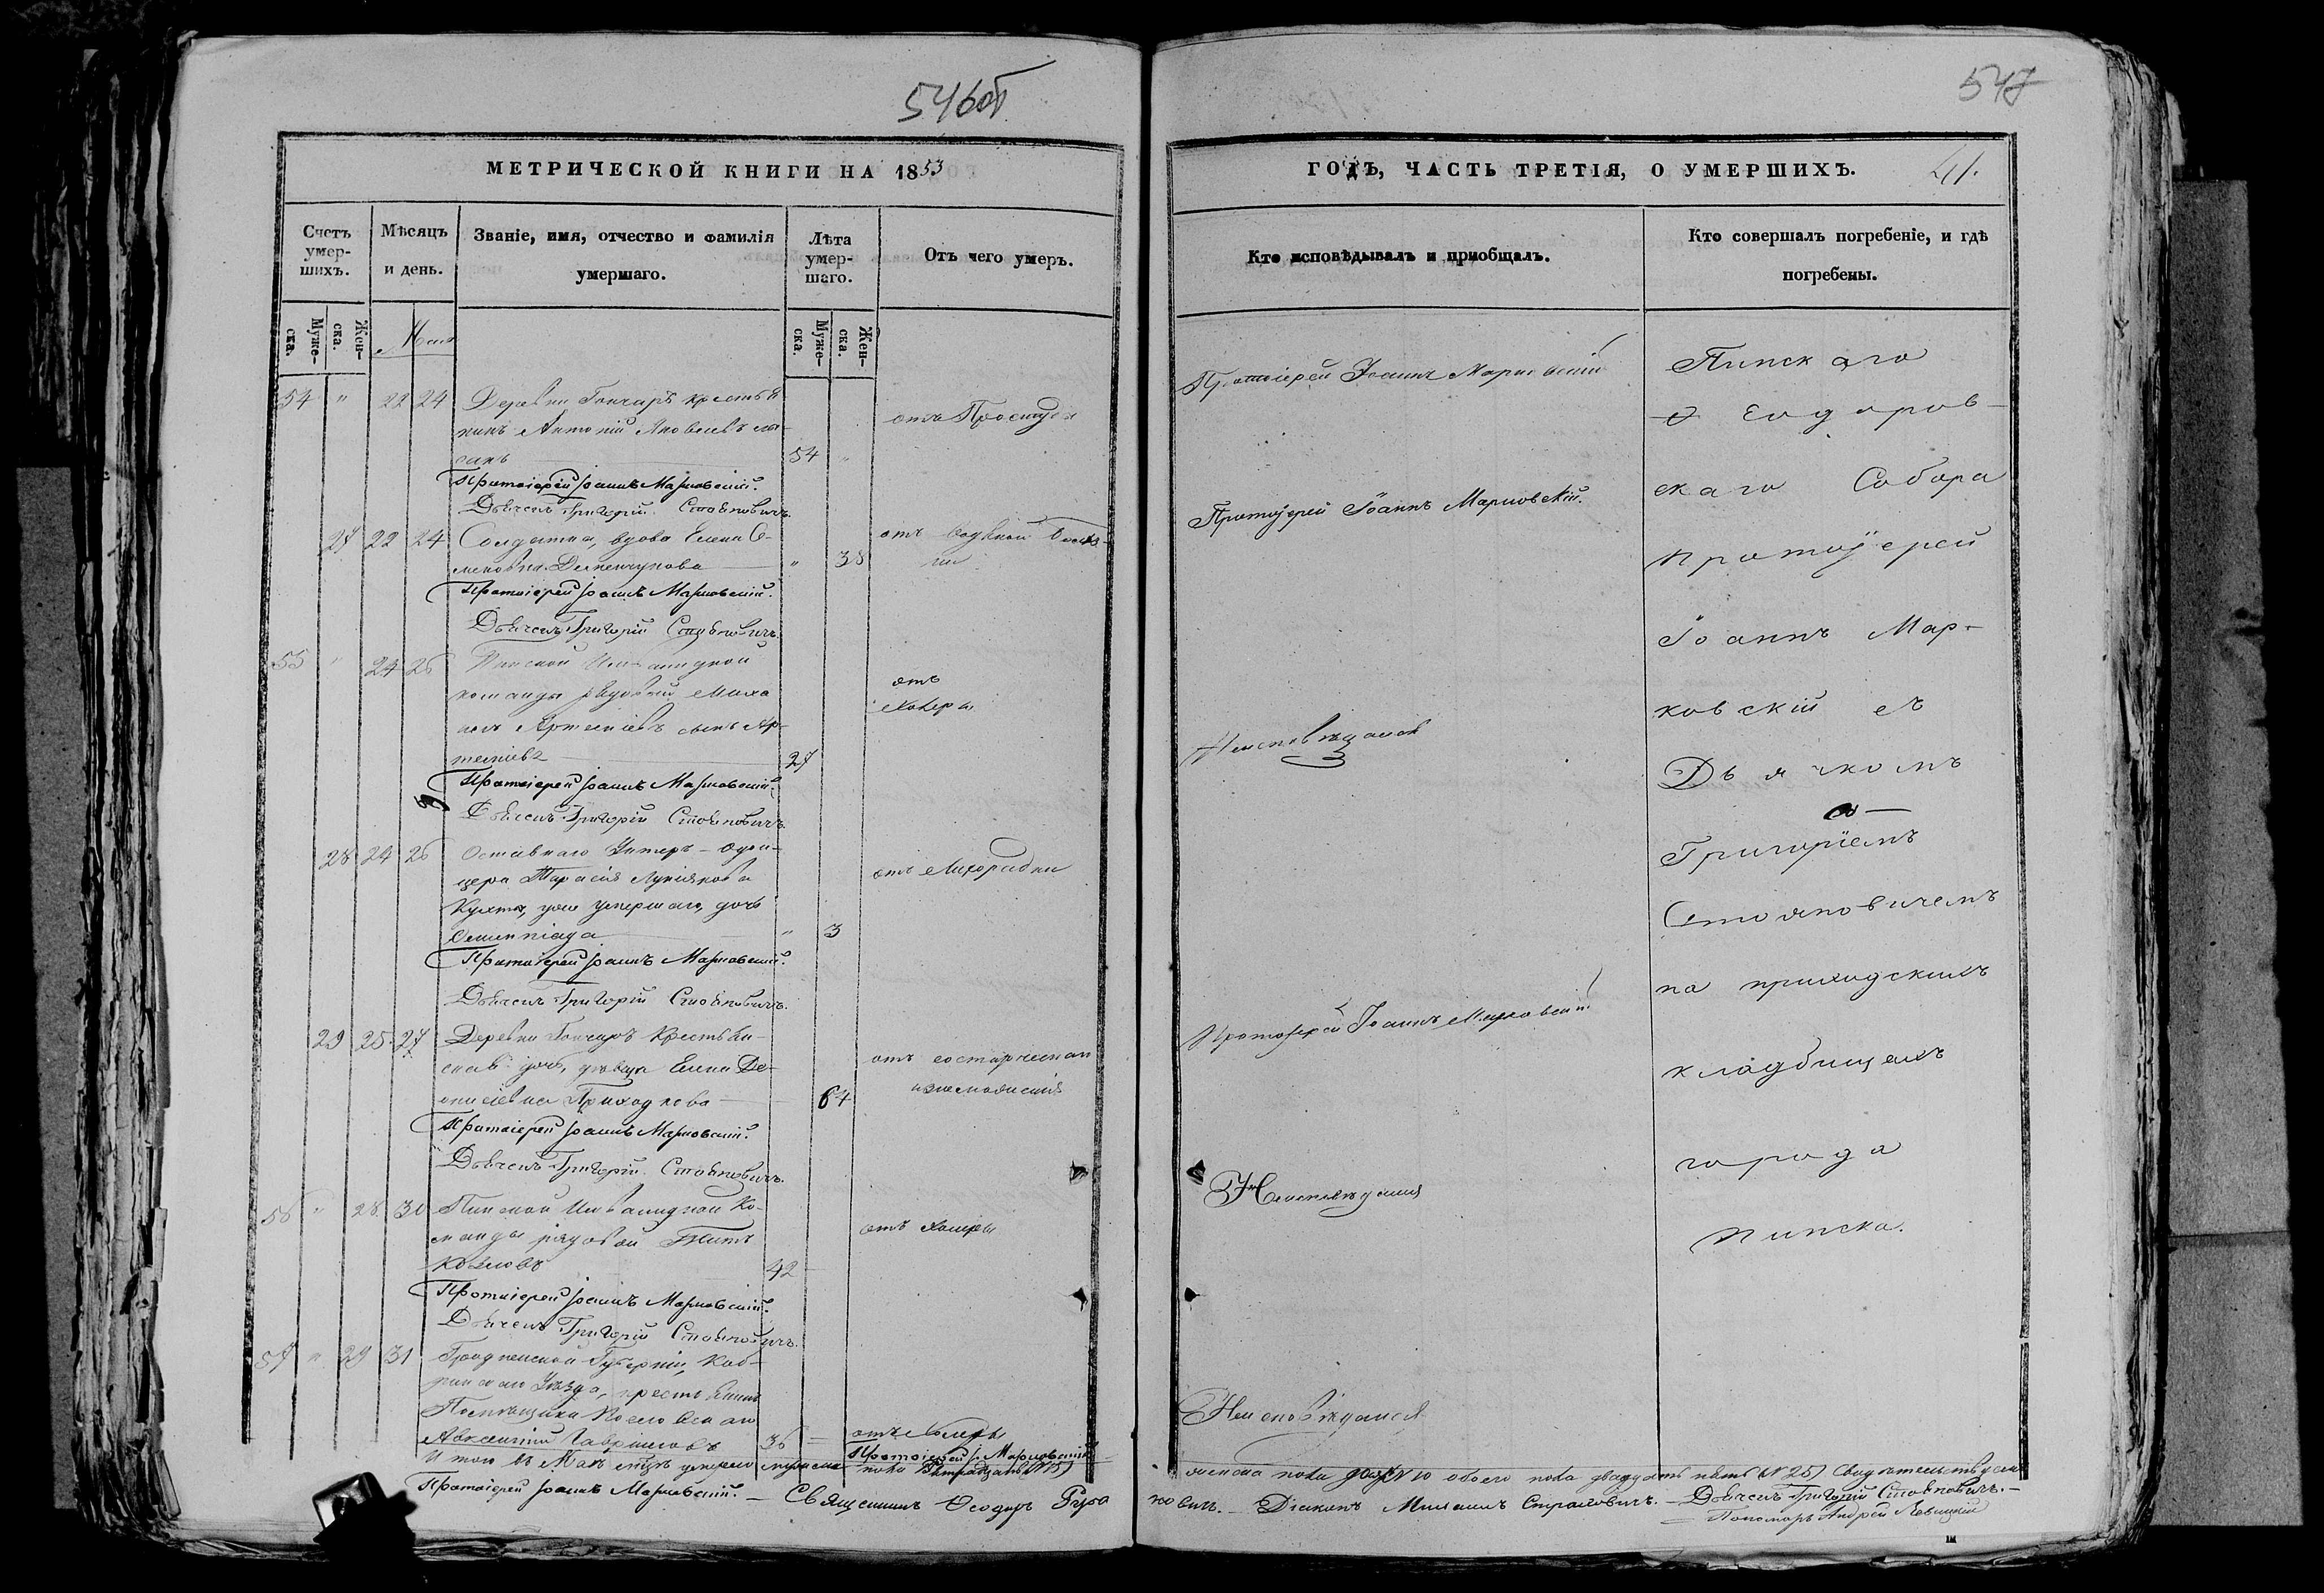 546об
МЕТРИЧЕСКОЙ КНИГИ НА 1853
Счетъ умер-шихъ.
Мѣсяцъ и день.
Званіе, имя, отчество и фамилія умершаго.
Лѣта умер-шаго.
Отъ чего умеръ.
Муже-ска.
Жен-ска.
Муже-ска.
Жен-ска.
Маія
54 " 22 24 Деревни Гончаръ крестья
нинъ Антоній Яковлевъ
54 "
отъ Простуды
Протоіерей Іоаннъ Марковскій.
Дьячекъ Григорій Стояновичъ.
27 22 24 Солдатка, вдова Елена Се-
меновна
" 38
отъ водяной болѣз-
ни
Протоіерей Іоаннъ Марковскій.
Дьячекъ Григорій Стояновичъ.
55 " 24 26 Пинской Инвалидной
команды рядовый Миха
илъ Артеміевъ сынъ Ар-
теміевъ
27
отъ
холеры
Протоіерей Іоаннъ Марковскій.
Дьячекъ Григорій Стояновичъ.
28 24 26 Оставнаго Унтеръ-офи-
цера Тарасія Лукіянова
Кухты, уже умершаго, дочь
Олимпіада
" 3
отъ Лихорадки
Протоіерей Іоаннъ Марковскій.
Дьячекъ Григорій Стояновичъ.
29 25 27 Деревни Гончаръ Крестьян-
ская дочь, дѣвица Елена Де-
онисіевна Приходкова
64
отъ старческаго
изнеможенія
Протоіерей Іоаннъ Марковскій.
Дьячекъ Григорій Стояновичъ.
56 " 28 30 Пинской Инвалидной Ко-
манды рядовой Титъ
Козловъ
42
отъ холеры
Протоіерей Іоаннъ Марковскій.
Дьячекъ Григорій Стояновичъ.
57 " 29 31 Гродненской Губерніи, Коб-
ринскаго Уѣзда, крестьянинъ
Помѣщика
Авксентій Гавріиловъ
36
отъ холеры
Протоіерей І. Марковскій
Итого въ Маѣ мѣсяцѣ умерло мужеска
пола пятнадцать (№15)
Протоіерей Іоаннъ Марковскій. — Священникъ Ѳеодоръ Руса
547
ГОДЪ, ЧАСТЬ ТРЕТІЯ, О УМЕРШИХЪ.
41.
Кто исповѣдывалъ и пріобщалъ.
Кто совершалъ погребеніе, и гдѣ погребены.
Протоіерей Іоаннъ Марковскій
Протоіерей Іоаннъ Марковскій.
Неисповѣдался
Протоіерей Іоаннъ Марковскій
Неисповѣдался
Неисповѣдался
Пинскаго
Ѳеодоров-
скаго Собора
протоіерей
Іоаннъ Мар-
ковскій съ
Дьячкомъ
Григоріемъ
Стояновичемъ
на приходскихъ
кладбищахъ
города
Пинска.
женска пола №10 обоего пола двадцать пять (№25)
ковичъ. — Діаконъ Михаилъ Страховичъ. — Дьячекъ Григорій Стояновичъ. —
Пономарь Андрей Левицкій